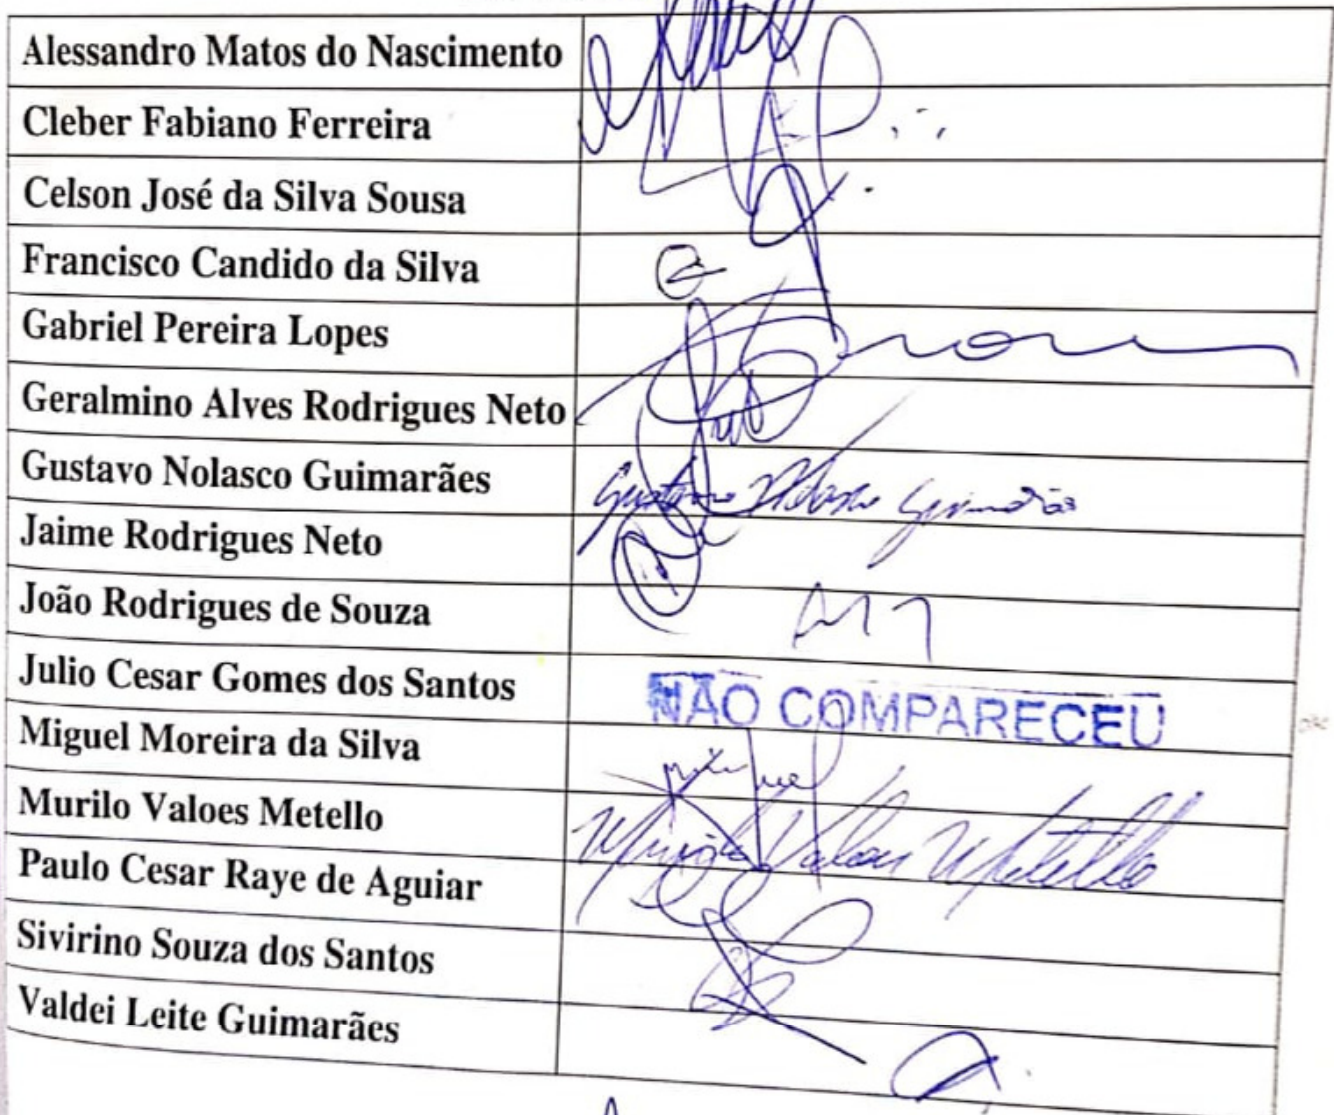 Alessandro Matos do Nascimento
Cleber Fabiano Ferreira
Celson José da Silva Sousa
Francisco Candido da Silva
Gabriel Pereira Lopes
Geralmino Alves Rodrigues Neto
Gustavo Nolasco Guimarães
Gustavo Nolasco Guimarães
Jaime Rodrigues Neto
João Rodrigues de Souza
Julio Cesar Gomes dos Santos
NÃO COMPARECEU
Miguel Moreira da Silva
Miguel
Murilo Valoes Metello
Murilo Valoes Metello
Paulo Cesar Raye de Aguiar
Sivirino Souza dos Santos
Valdei Leite Guimarães